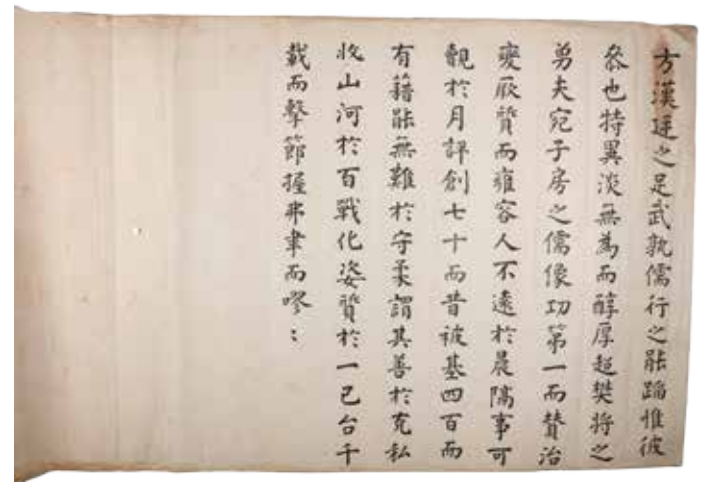 方漢廷之足武孰儒行之能蹈惟彼
叅也特異淡無為而醇厚超樊將之
勇夫宛子房之儒像功第一而賛治
變厥質而雍容人不遠於晨隔事可
覩於月評創七十而昔被基四百而
有籍能無難於守柔謂其善於克私
收山河於百戰化姿質於一己台千
載而擊節握弗聿而嘐〻